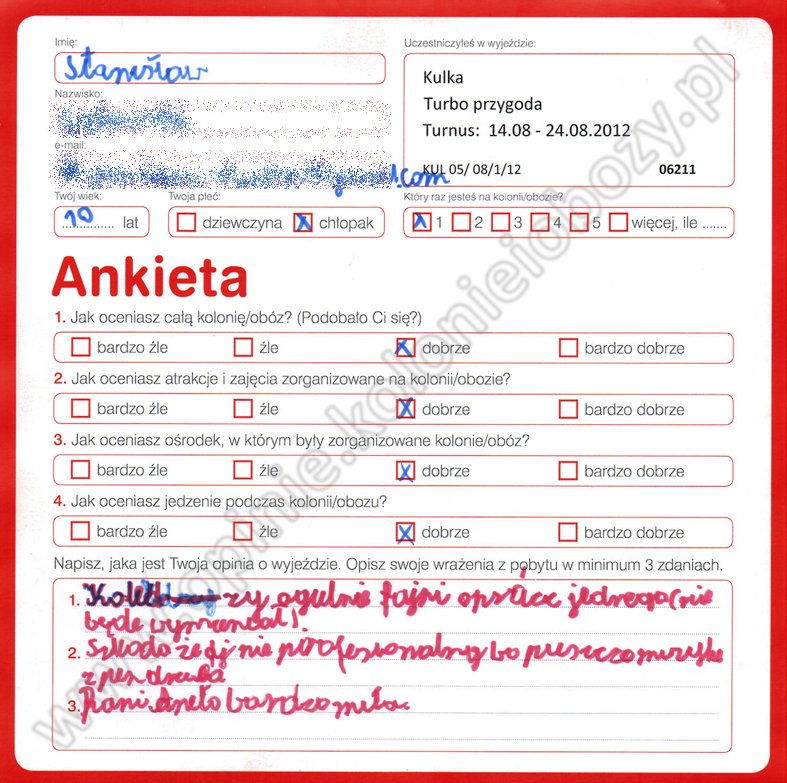 Imię:
Stanisław
Uczestniczyłeś w wyjeździe:
Kulka
Turbo przygoda
Turnus: 14.08 - 24.08.2012
KUL 05/ 08/1/12 06211
Nazwisko:
e-mail:
.com
Twój wiek: Twoja płeć: Który raz jesteś na kolonii/obozie?
10 lat dziewczyna chłopak 1 2 3 4 5 więcej, ile .......
Ankieta
1. Jak oceniasz całą kolonię/obóz? (Podobało Ci się?)
bardzo źle źle dobrze bardzo dobrze
2. Jak oceniasz atrakcje i zajęcia zorganizowane na kolonii/obozie?
bardzo źle źle dobrze bardzo dobrze
3. Jak oceniasz ośrodek, w którym były zorganizowane kolonie/obóz?
bardzo źle źle dobrze bardzo dobrze
4. Jak oceniasz jedzenie podczas kolonii/obozu?
bardzo źle źle dobrze bardzo dobrze
Napisz, jaka jest Twoja opinia o wyjeździe. Opisz swoje wrażenia z pobytu w minimum 3 zdaniach.
1. zy ogulnie fajni oprócz jednego (nie
będe wymieniał).
2. szkoda że dj nie profesionalny bo puszczo muzyke
z pendrwka
3. Pani Aneto bardzo miła.
www.opinie.kolonieiobozy.pl